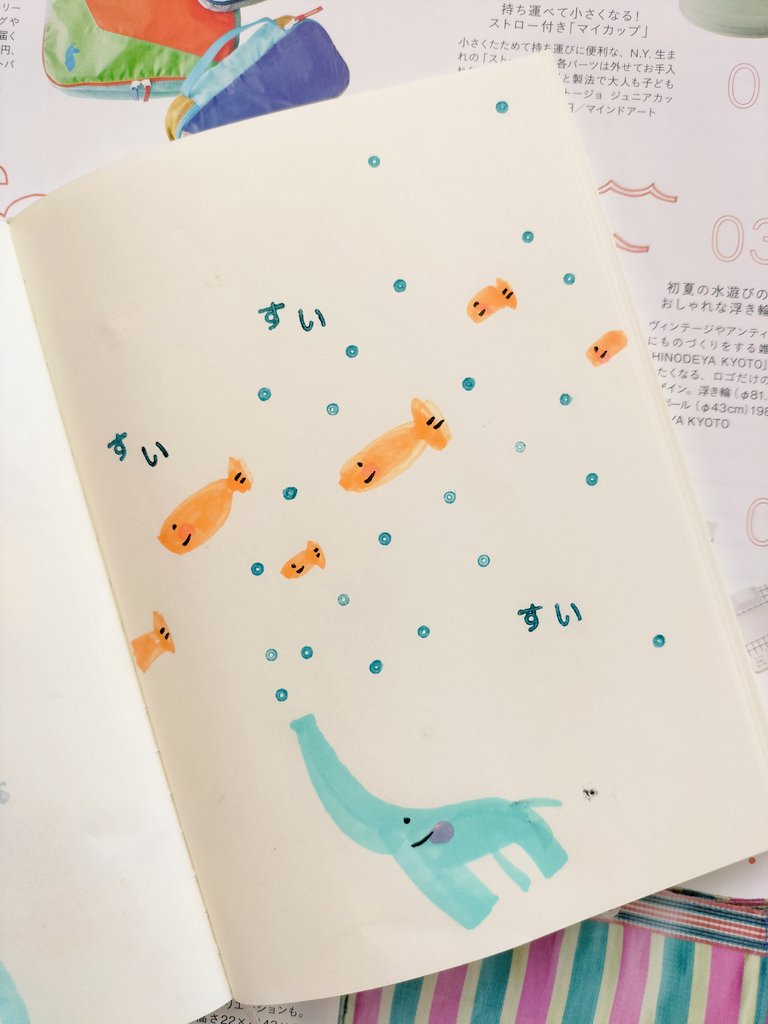 リー
グや
届く
円、
トバ
持ち運べて小さくなる！
ストロー付き「マイカップ」
小さくたためて持ち運びに便利な、N.Y.生ま
れの「スト
各パーツは外せてお手入
と製法で大人も子ども
トージョ ジュニアカッ
円／マインドアート
0
03
初夏の水遊びの
おしゃれな浮き輪
ヴィンテージやアンティ
にものづくりをする雑
HINODEYA KYOTO」
たくなる、ロゴだけの
ザイン。浮き輪（φ81.
ボール（φ43cm）198
YA KYOTO
0
すい
すい
すい
ションも。
高さ22×